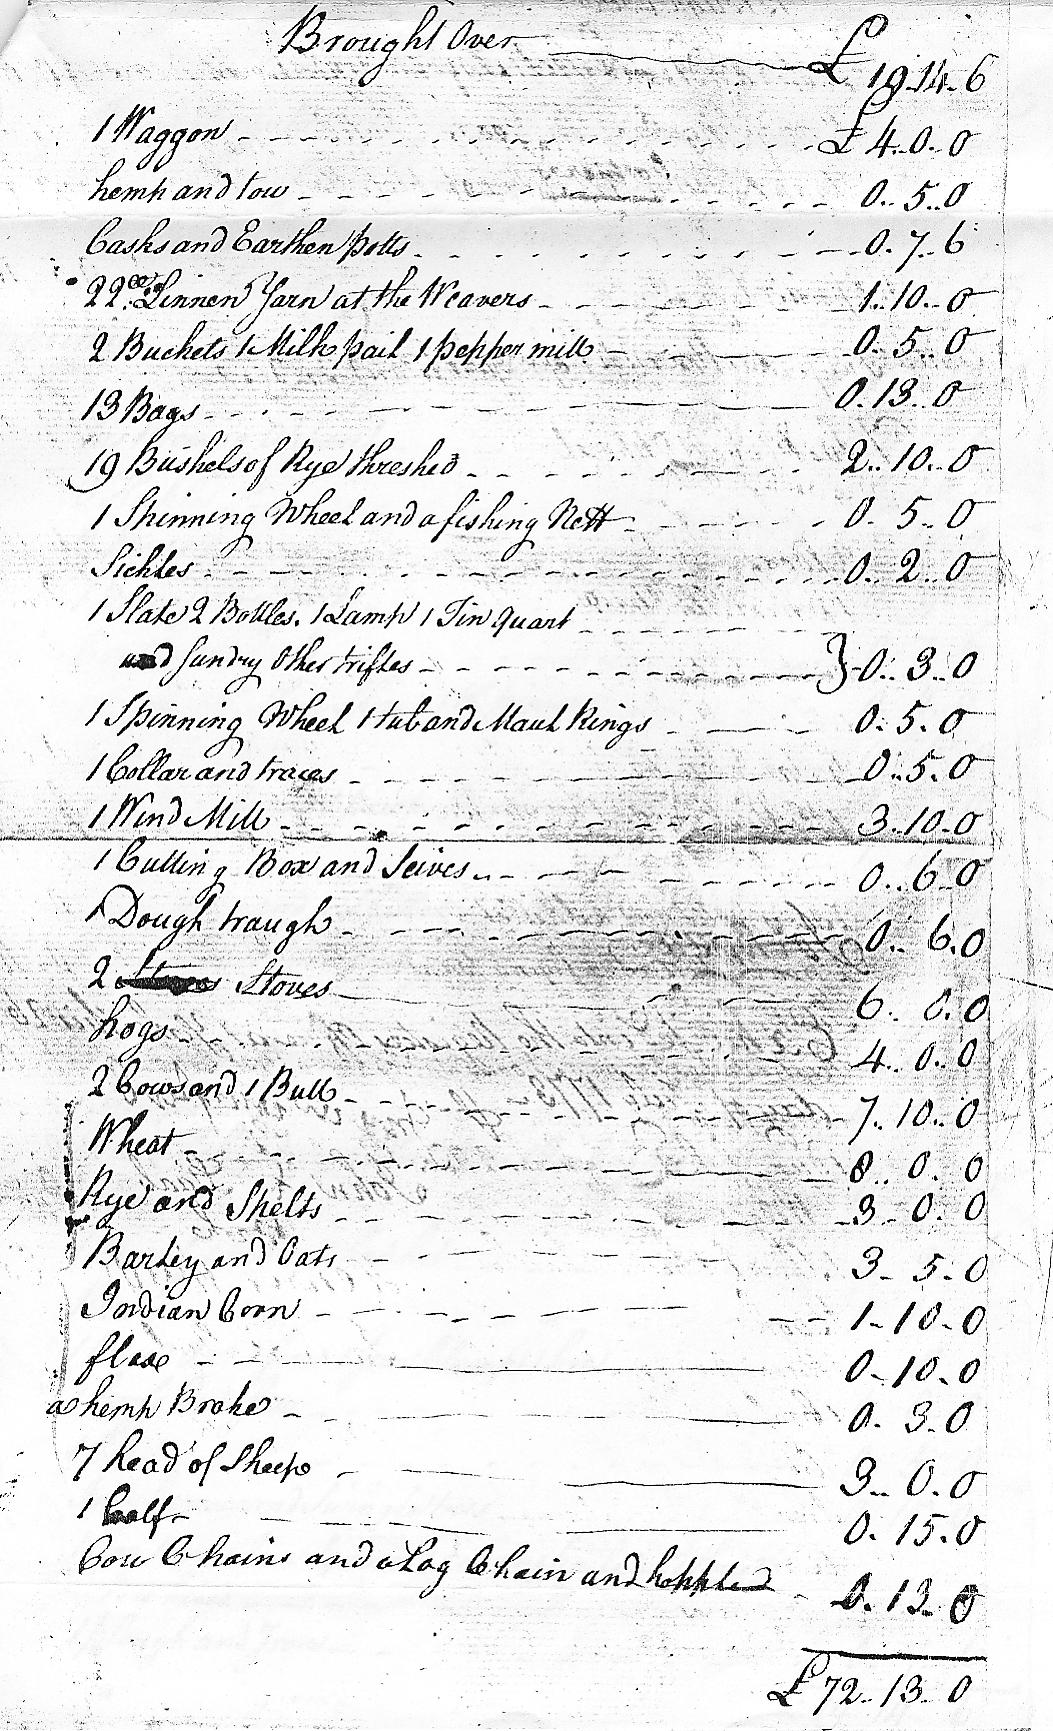 Brought Over £ 19.14.6
1 Waggon £ 4..0..0
hemp and tow 0..5..0
Casks and Earthen potts 0.7.6
22 Linnen Yarn at the Weavers 1..10..0
2 Buckets 1 Milk pail 1 pepper mill 0.5..0
13 Bags 0.13..0
19 Bushels of Rye threshed 2..10..0
1 Spinning Wheel and a fishing Nett 0.5..0
Sickles 0..2..0
1 Slate 2 Bottles. 1 Lamp 1 Tin quart
and sundry Other trifles } 0..3..0
1 Spinning Wheel 1 tub and Maul Rings 0.5.0
1 Collar and traces 0..5.0
1 Wind Mill 3.10.0
1 Cutting Box and Seives 0..6.0
1 Dough traugh 0..6.0
2 Stoves 6..0.0
hogs 4..0.0
2 Cows and 1 Bull 7..10..0
Wheat 8..0..0
Rye and Spelts 3..0..0
Barley and Oats 3.5.0
Indian Corn 1.10.0
flax 0.10.0
a hemp Brake 0.3.0
7 head of Sheep 3..0.0
1 Calf 0.15.0
Cow Chains and a Log Chain and hoppled 0.13.0
£ 72..13..0